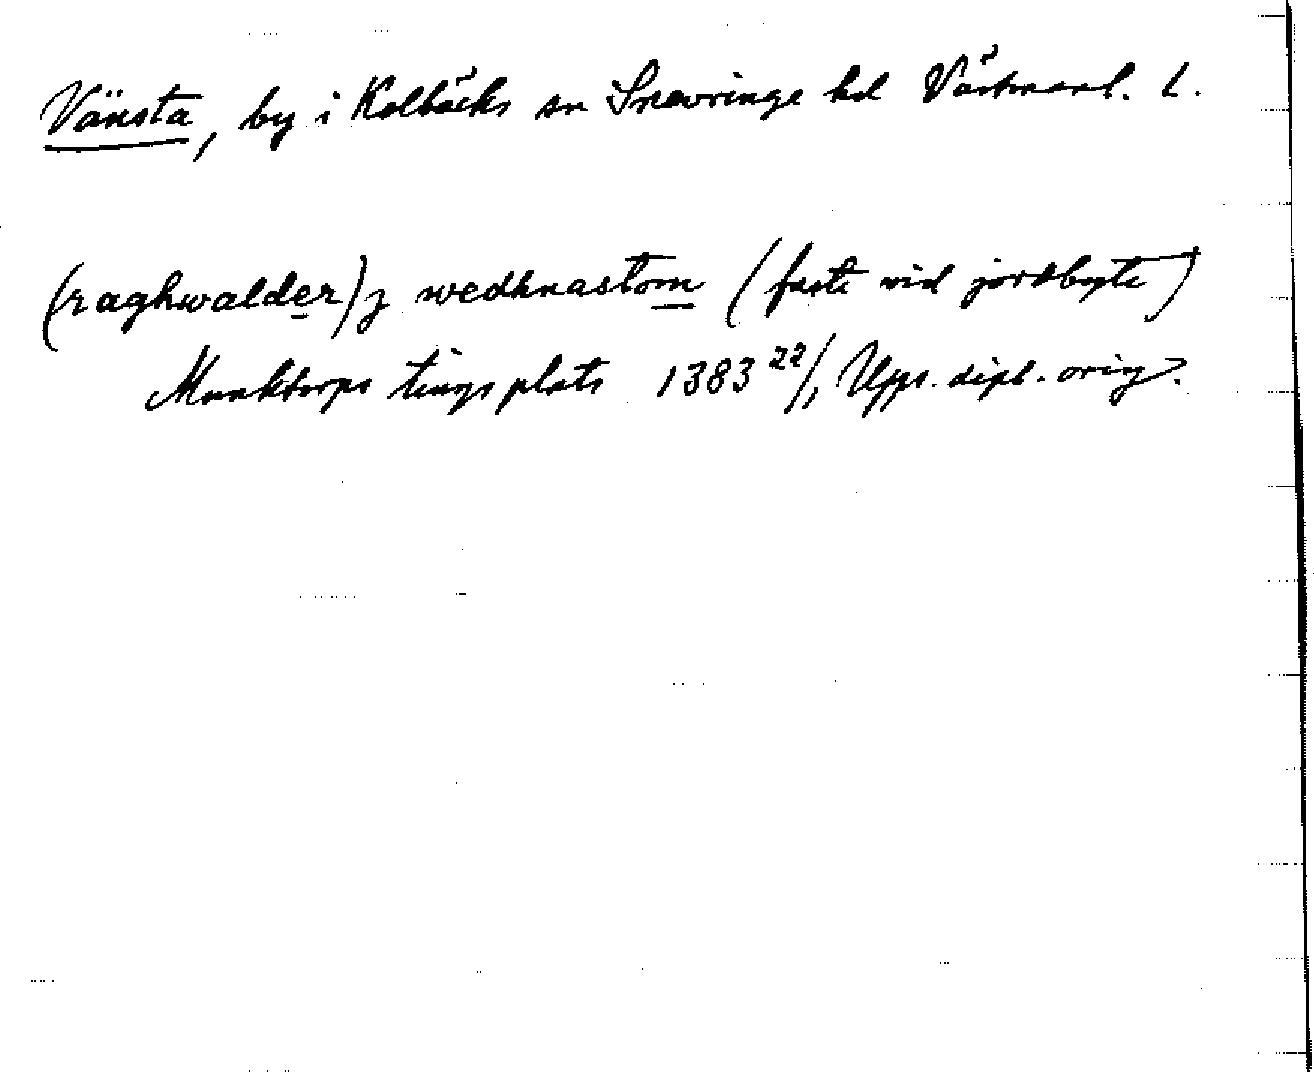 Vänsta, by i Kolbäcks sn Snevringe hd Västmanl. l.
(raghwalder) j wedhnastom (faste vid jordbyte)
Munktorps tingsplats 1383 22/1 Upps. dipl. orig.